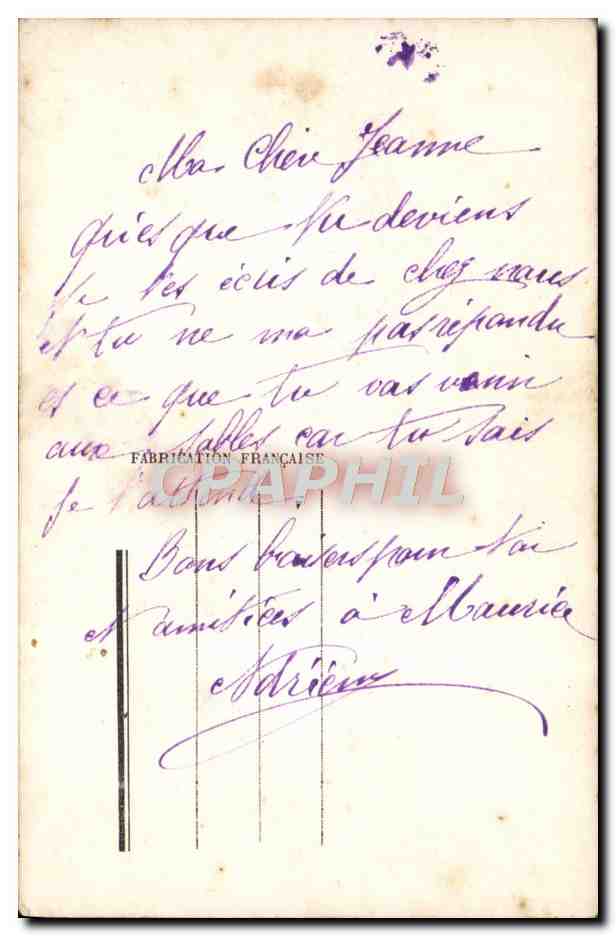 Ma Chère Jeanne
qu'es que tu deviens
Je t'es écris de chez nous
et tu ne ma pas répondu
es ce que tu vas venir
aux sables car tu sais
FABRICATION FRANÇAISE
CPAPHIL
Je t'attend.
Bons baisers pour toi
et amitiées à Maurice
Adrien